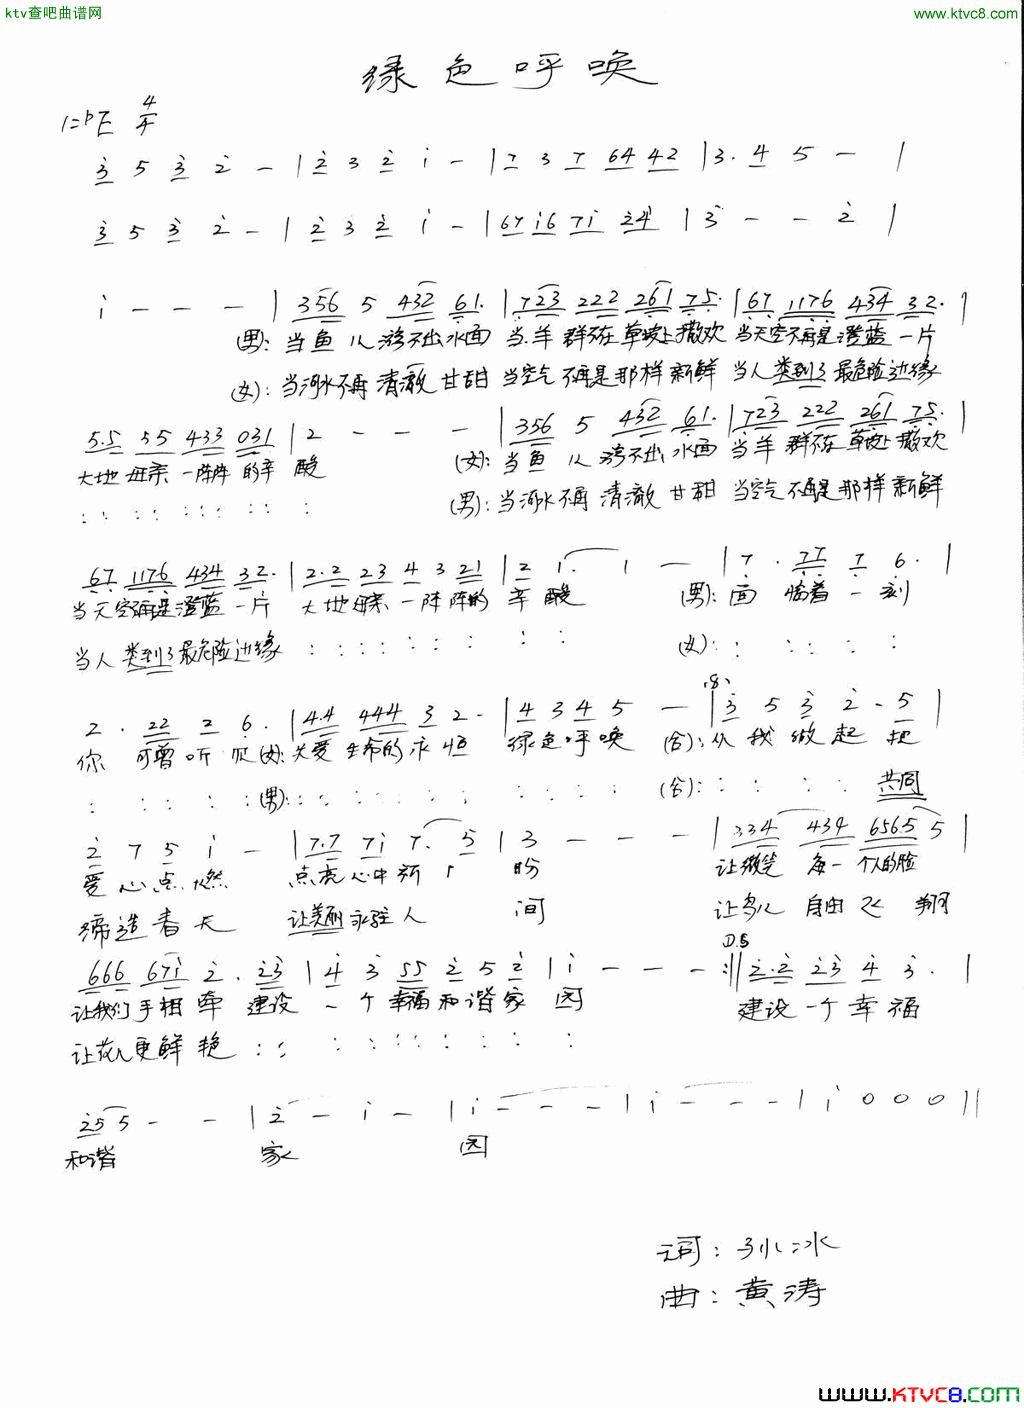 ktv查吧曲谱网
www.ktvc8.com
绿色呼唤
1=bE 4/4
3 5 3 2 - | 2 3 2 i - | 7 3 7 64 42 | 3. 4 5 - |
3 5 3 2 - | 2 3 2 i - | 67 i6 7i 24 | 3 - - 2 |
i - - - | 356 5 432 61. | 723 222 261 75. | 67 1176 434 32. |
(男): 当鱼儿游不出水面 当羊群不在草坡上撒欢 当天空不再是澄蓝一片
(女): 当河水不再清澈甘甜 当空气不再是那样新鲜 当人类到了最危险边缘
5.5 55 433 031 | 2 - - - | 356 5 432 61. | 723 222 261 75. |
大地母亲一阵阵的辛酸 (女): 当鱼儿游不出水面 当羊群不在草坡上撒欢
(男): 当河水不再清澈甘甜 当空气不再是那样新鲜
67 1176 434 32. | 2.2 23 4 3 21 | 2 1. 1 - | 7. 77 7 6. |
当天空不再是澄蓝一片 大地母亲一阵阵的辛酸 (男): 面临着一刻
当人类到了最危险边缘 : : : : : : : : : (女): : : : : :
2. 22 2 6. | 4.4 444 3 2. | 4 3 4 5 - | 3 5 3 2. 5 |
你可曾听见 (女): 关爱生命的永恒 绿色呼唤 (合): 从我做起 把
: : : : : (男): : : : : : : : : : : : (合): : : : : 共同
2 7 5 i - | 7.7 7i 7. 5 | 3 - - - | 334 434 6565 5 |
爱心点燃 点亮心中所有 盼 让微笑每一个人的脸
缔造春天 让美丽永驻人间 让鸟儿自由飞翔
D.S
666 67i 2. 23 | 4 3 55 2 5 2 | i - - - :|| 2.2 23 4 3. |
让我们手相牵 建设一个幸福和谐家园 建设一个幸福
让花儿更鲜艳 : : : : : : : : : :
255 - - | 2 - i - | i - - - | i - - - | i 0 0 0 ||
和谐 家 园
词: 孙冰
曲: 黄涛
www.KTVC8.com